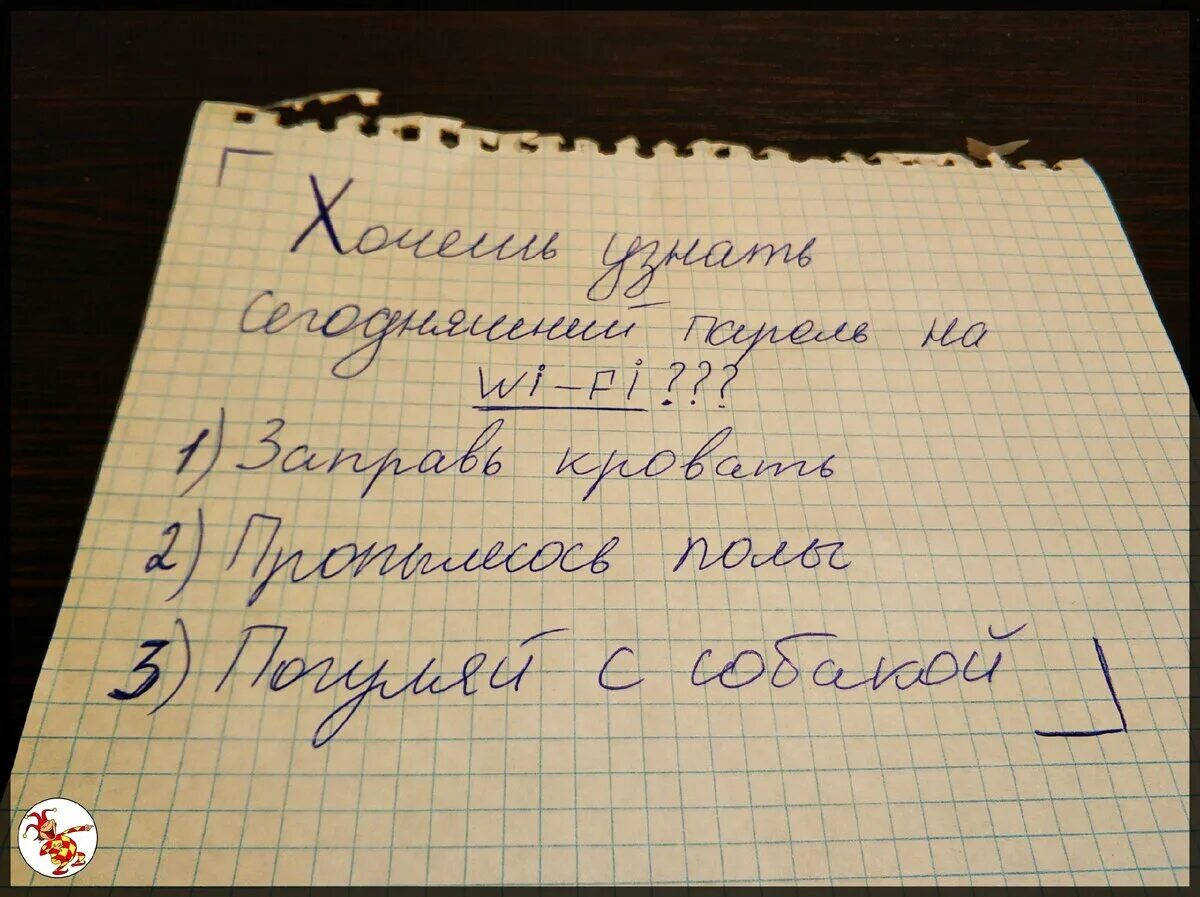 Хочешь узнать
сегодняшний пароль на
Wi-Fi???
1) Заправь кровать
2) Пропылесось полы
3) Погуляй с собакой